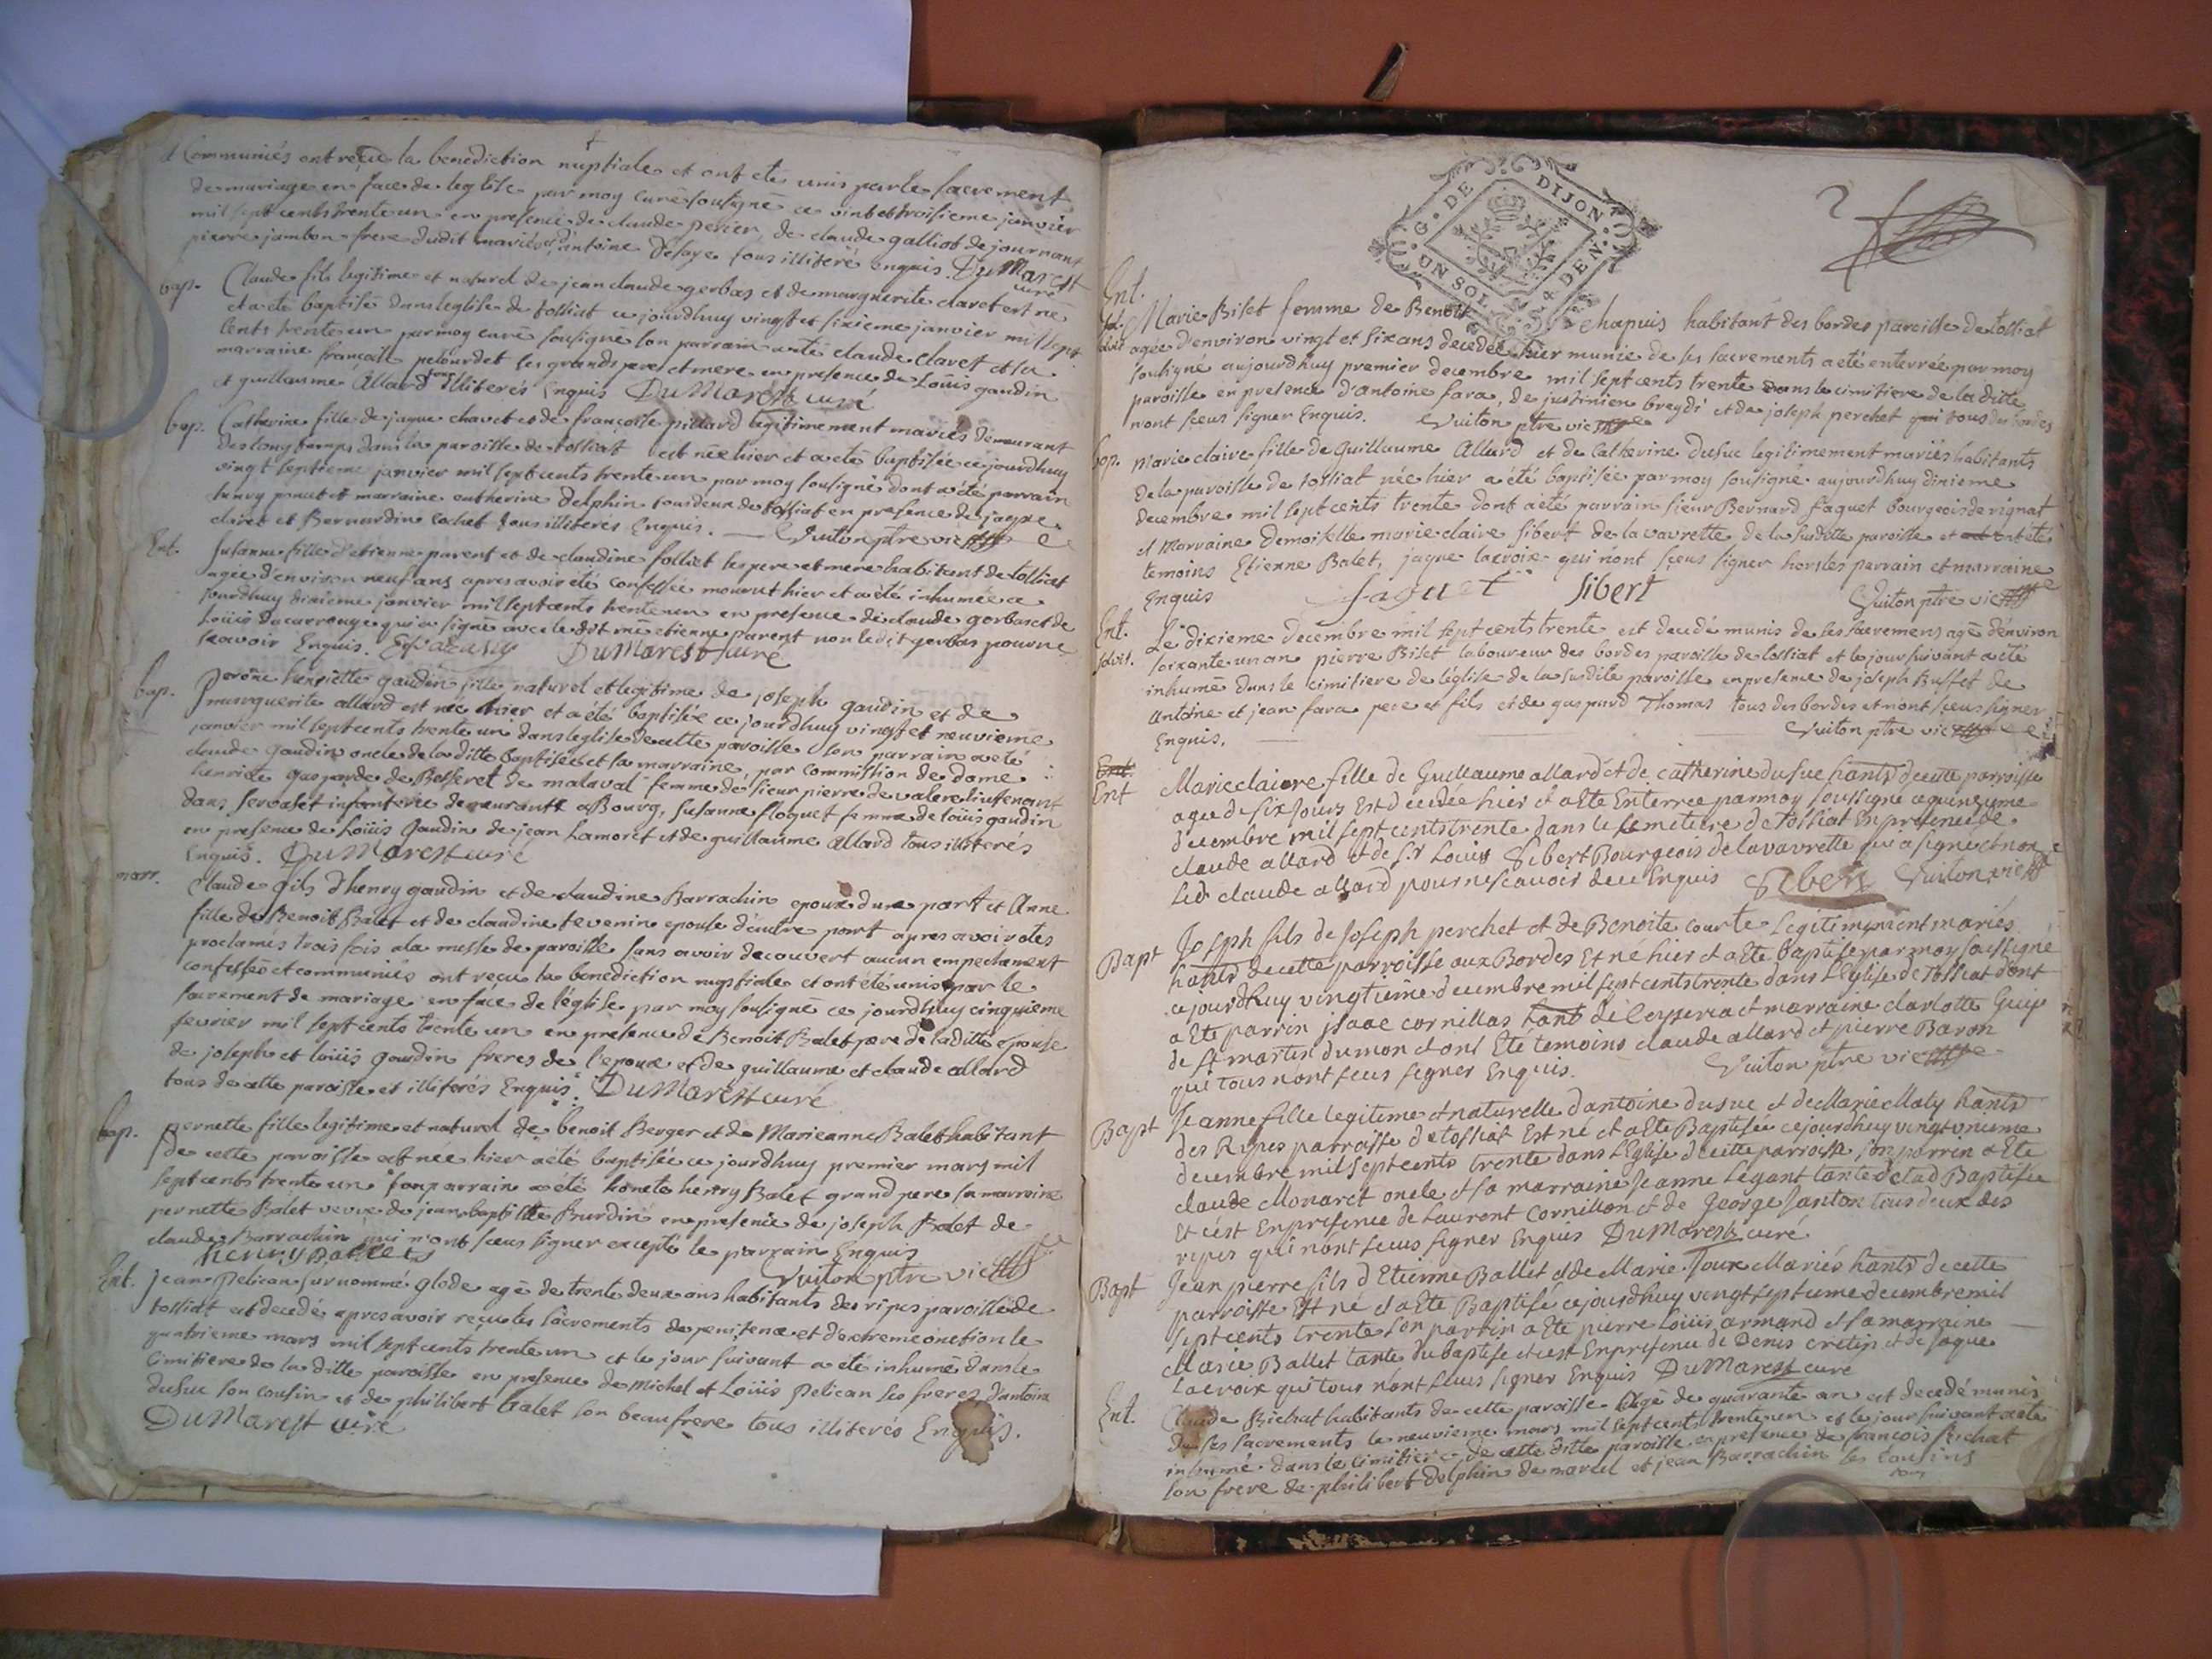 & Communiés ont reçu la benediction nuptiale et ont eté unis par le sacrement
de mariage en face de leglise par moy curé sousigné ce vint et troisieme janvier
mil sept cents trente un en presence de claude perier, de claude galliot de journant
pierre jambon frere dudit mariés et d'antoine Desaye tous illiteré enquis. DuMarest
curé
bap. Claude fils legitime et naturel de jean claude gerbas et de marguerite claret est né
et a eté baptisé dans leglise de tossiat ce jourdhuy vingt et sixieme janvier mil sept
cents trente un par moy curé sousigné son parrain a eté claude claret et sa
marraine françoise pelourdet ses grands pere et mere en presence de Loüis gaudin
et guillaume Allard tous illiterés Enquis DuMarest curé
bap. Catherine fille de jaque chavet et de françoise pillard legitimement mariés demeurant
des longchamps dans la paroisse de tossiat est née hier et a eté baptisée ce jourdhuy
vingt septieme janvier mil sept cents trente un par moy sousigné dont a été parrain
henry ponut et marraine catherine Delphin tous deux de tossiat en presence de jaque
claret et Bernardin cochet tous illiteres Enquis. Vuiton ptre vic
Ent. Susanne fille d'etienne parent et de claudine folliet ses pere et mere habitant de tossiat
agée d'environ neuf ans apres avoir été confessée mourut hier et a été inhumée ce
jourdhuy dixieme janvier mil sept cents trente un en presence de claude gerbas et de
Loüis ducarrouge qui a signé avec le dit me etienne parent non ledit gerbas pour ne
scavoir Enquis. DuMarest curé
bap. perône henriette gaudin fille naturel et legitime de joseph gaudin et de
marguerite allard est née hier et a été baptisée ce jourdhuy vingt et neuvieme
janvier mil sept cents trente un dans leglise de cette paroisse son parrain a eté
claude gaudin oncle de la ditte baptisée et sa marraine, par commission de dame
henriete gasparde de Bosseret de malaval femme de sieur pierre de valere lieutenant
dans infanterie demeurante a Bourg, susanne floquet femme de loüis gaudin
en presence de Loüis Gaudin de jean Lamoret et de guillaume Allard tous illiterés
Enquis. DuMarest curé
marr. Claude fils d'henry gaudin et de claudine Barrachin epoux dune part et Anne
fille de Benoit Balet et de claudine tevenin epouse d'autre part apres avoir etes
proclamés trois fois a la messe de paroisse sans avoir decouvert aucun empechement
confessés et communiés ont reçu la benediction nuptiale et ont été unis par le
sacrement de mariage en face de l'église par moy sousigné ce jourdhuy cinquieme
fevrier mil sept cents trente un en presence de Benoit Balet pere de la ditte epouse
de joseph et loüis gaudin freres de l'epoux et de guillaume et claude allard
tous de cette paroisse et illiterés Enquis. DuMarest curé
bap. pernette fille legitime et naturel de benoit Berger et de Marieanne Balet habitant
de cette paroisse est née hier a été baptisée ce jourdhuy premier mars mil
sept cents trente un son parrain a eté honete henry Balet grand pere sa marraine
pernette Balet veuve de jean baptiste Burdin en presence de joseph Balet de
claude Barrachin qui n'ont sceus signer excepté le parrain Enquis
henry Ballet Vuiton ptre vic
Ent. Jean Pelican surnommé glode agé de trente deux ans habitants des ripes paroisse de
tossiat est decedé apres avoir reçu les sacrements de penitence et d'extreme onction le
quatrieme mars mil sept cents trente un et le jour suivant a été inhumé dans le
cimitiere de la ditte paroisse en presence de Michel et Loüis Pelican ses freres d'antoine
dusuc son cousin et de philibert balet son beaufrere tous illiterés Enquis.
DuMarest curé
G. DE DIJON
UN SOL 4 DEN.
2
Ent. Marie Biset femme de Benoit chapuis habitant des bordes paroisse de tossiat
solvit agée d'environ vingt et six ans decedée hier munie de ses sacrements a eté enterrée par moy
sousigné aujourdhuy premier decembre mil sept cents trente dans le cimitiere de la dite
paroisse en presence d'Antoine fara, de justinien breydi et de joseph perchet tous des bordes
n'ont sceus signer Enquis. Vuiton ptre vic
bap. Marie claire fille de Guillaume Allard et de Catherine Dusuc legitimement mariés habitants
de la paroisse de tossiat née hier a été baptisée par moy sousigné aujourdhuy dixieme
decembre mil sept cents trente dont a été parrain sieur Bernard faquet bourgeois de rignat
et Marraine Demoiselle marie claire sibert de la vavrette de la susditte paroisse et ont été
temoins Etienne Balet, jaque lacroix qui n'ont sceus signer hors les parrain et marraine
Enquis faquet Sibert Vuiton ptre vic
Ent. Le dixieme decembre mil sept cents trente est decedé munis de ses sacremens agé d'environ
solvit. soixante un an pierre Biset laboureur des bordes paroisse de tossiat et le jour suivant a été
inhumé dans le cimitiere de l'église de la susdite paroisse en presence de joseph Buffet de
Antoine et jean fara pere et fils et de gaspard Thomas tous des bordes et n'ont sceus signer
Enquis. Vuiton ptre vic
Ent Marie claiere fille de Guilleaume allard et de catherine dusuc hants de cette parroisse
agee de six jours Est decedée hier et a Ete Enterree par moy soussigné ce quinzieme
decembre mil sept cents trente dans le semetiere de tossiat En presence de
claude allard et de sr Louis Sibert Bourgeois de la vavrette qui a signé et non
led claude allard pour ne scavoir de ce Enquis Sibert Vuiton vic
Bapt Joseph fils de Joseph perchet et de Benoite courte Legitimement mariés
hants de cette parroisse aux Bordes Est né hier et a Ete baptisé par moy soussigné
ce jourdhuy vingtieme decembre mil sept cents trente dans L'Eglise de Tossiat dont
a Ete parrin jsaac cornillas hant de Ceyseria et marraine charlotte Guip
de st martin du mon et ont Ete temoins claude allard et pierre Baron
qui tous n'ont sceus segner Enquis. Vuiton ptre vic
Bapt Jeanne fille legitime et naturelle d'antoine dusuc et de Marie Maly hants
des Ripes parroisse de tossiat Est né et a Ete Baptisée ce jourdhuy vingt unieme
decembre mil sept cents trente dans L'Eglise de cette parroisse son parrin a Ete
claude Monaret oncle et sa marraine Jeanne Legant tante de lad Baptisée
Et c'est En presence de Laurent Cornillon et de George Janton tous deux des
ripes qui n'ont sceus segner Enquis DuMarest curé
Bapt Jean pierre fils d'Etienne Ballet et de Marie Joux Mariés hants de cette
parroisse Est né et a Ete Baptisé ce jourdhuy vengt septieme decembre mil
sept cents trente son parrin a Ete pierre Loüis armand et sa marraine
Marie Ballet tante du baptisé et c'est En presence de Denis cretin et de jaque
Lacroix qui tous n'ont sceus signer Enquis DuMarest curé
Ent. Claude Bichat habitants de cette paroisse agé de quarante an est decedé munis
de ses sacrements le neuvieme mars mil sept cents trente un et le jour suivant a été
inhumé dans le cimitiere de cette ditte paroisse en presence de françois Bichat
son frere de philibert delphin de marcel et jean Barrachin ses cousins
tous